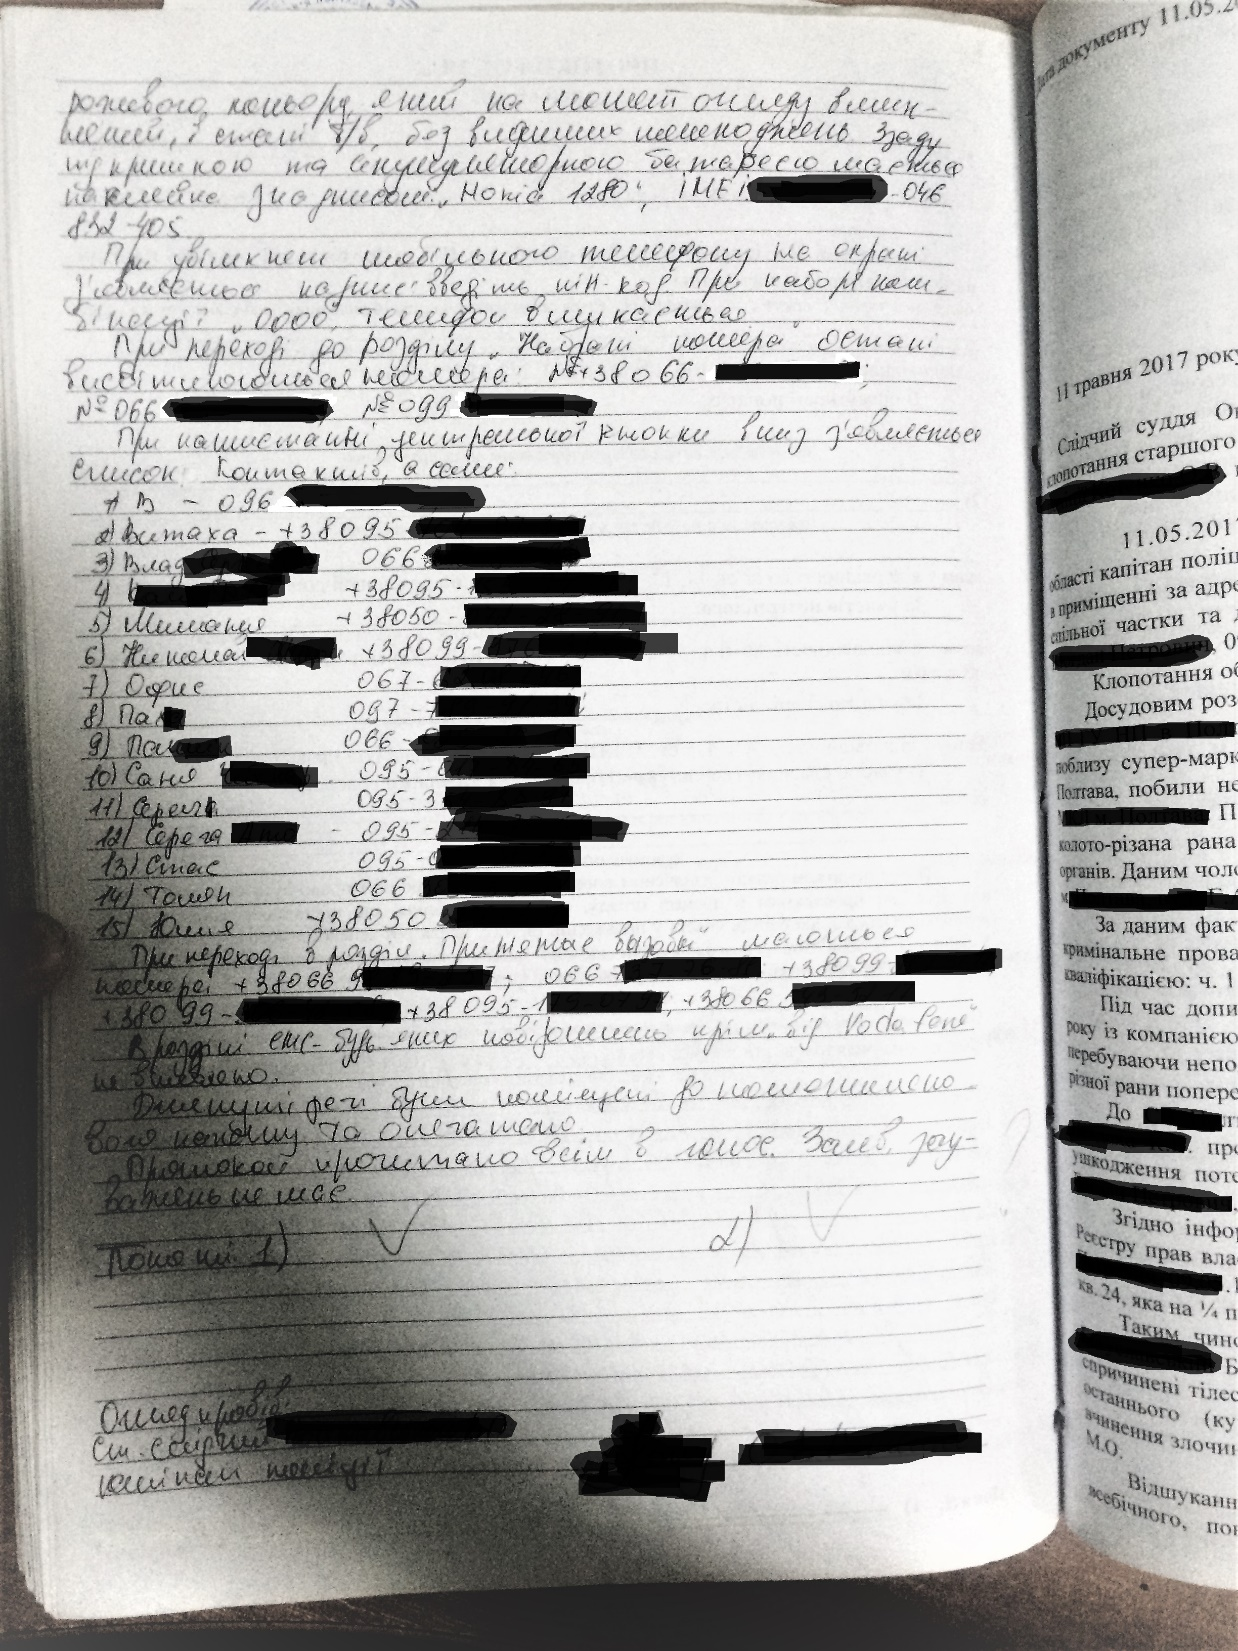 рожевого кольору, який на момент огляду вимк-
нений, в стані б/в, без видимих пошкоджень. Ззаду
під кришкою та акумуляторною батареєю мається
наклейка з надписом „Нокіа 1280“, ІМЕІ -046
832-405.
При увімкнені мобільного телефону на екрані
з'являється надпис введіть пін-код. При наборі ком-
бінації „0000“, телефон вмикається
При переході до розділу „Набрані номера“ остані
висвітилися номера: №+38066- ;
№ 066 № 099
При натисканні центральної кнопки вниз з'являється
список контактів, а саме:
1) В - 096
2) Витаха - +38095-
3) Влад 066
4) +38095-
5) +38050-
6) Николай +38099-
7) Офис 067-
8) Па 097-7
9) Па 066-
10) Саня 095-
11) Серёга 095-3
12) Серега - 095-
13) Стас 095-
14) Толян 066
15) Юлия +38050
При переході в розділ „Принятые вызовы“ маються
номера +38066 9 ; 066 +38099-
+38099- , +38095-1 , +38066
В розділі смс-будь яких повідомлень крім від Vodafone
не виявлено.
Вилучені речі були поміщені до
пакету та опечатано
Протокол прочитано всім в голос. Заяв, зау-
важень не має.
Поняті: 1) 2)
Огляд провів:
Ст. слідчий
капітан поліції
Дата документу 11.05.20
11 травня 2017 року
Слідчий суддя Ок
клопотання старшого
11.05.2017
області капітан поліц
в приміщенні за адре
спільної частки та д
, 0
Клопотання об
Досудовим роз
поблизу супер-марк
Полтава, побили не
П
колото-різана рана
органів. Даним чоло
м.
За даним фак
кримінальне прова
кваліфікацією: ч. 1
Під час допи
року із компанією
перебуваючи непо
різної рани попере
До
. про
ушкодження поте
Згідно інфор
Реєстру прав вла
кв. 24, яка на ¼ п
Таким чино
Б
спричинені тілес
останнього (ку
вчинення злочин
М.О.
Відшуканн
всебічного, пов